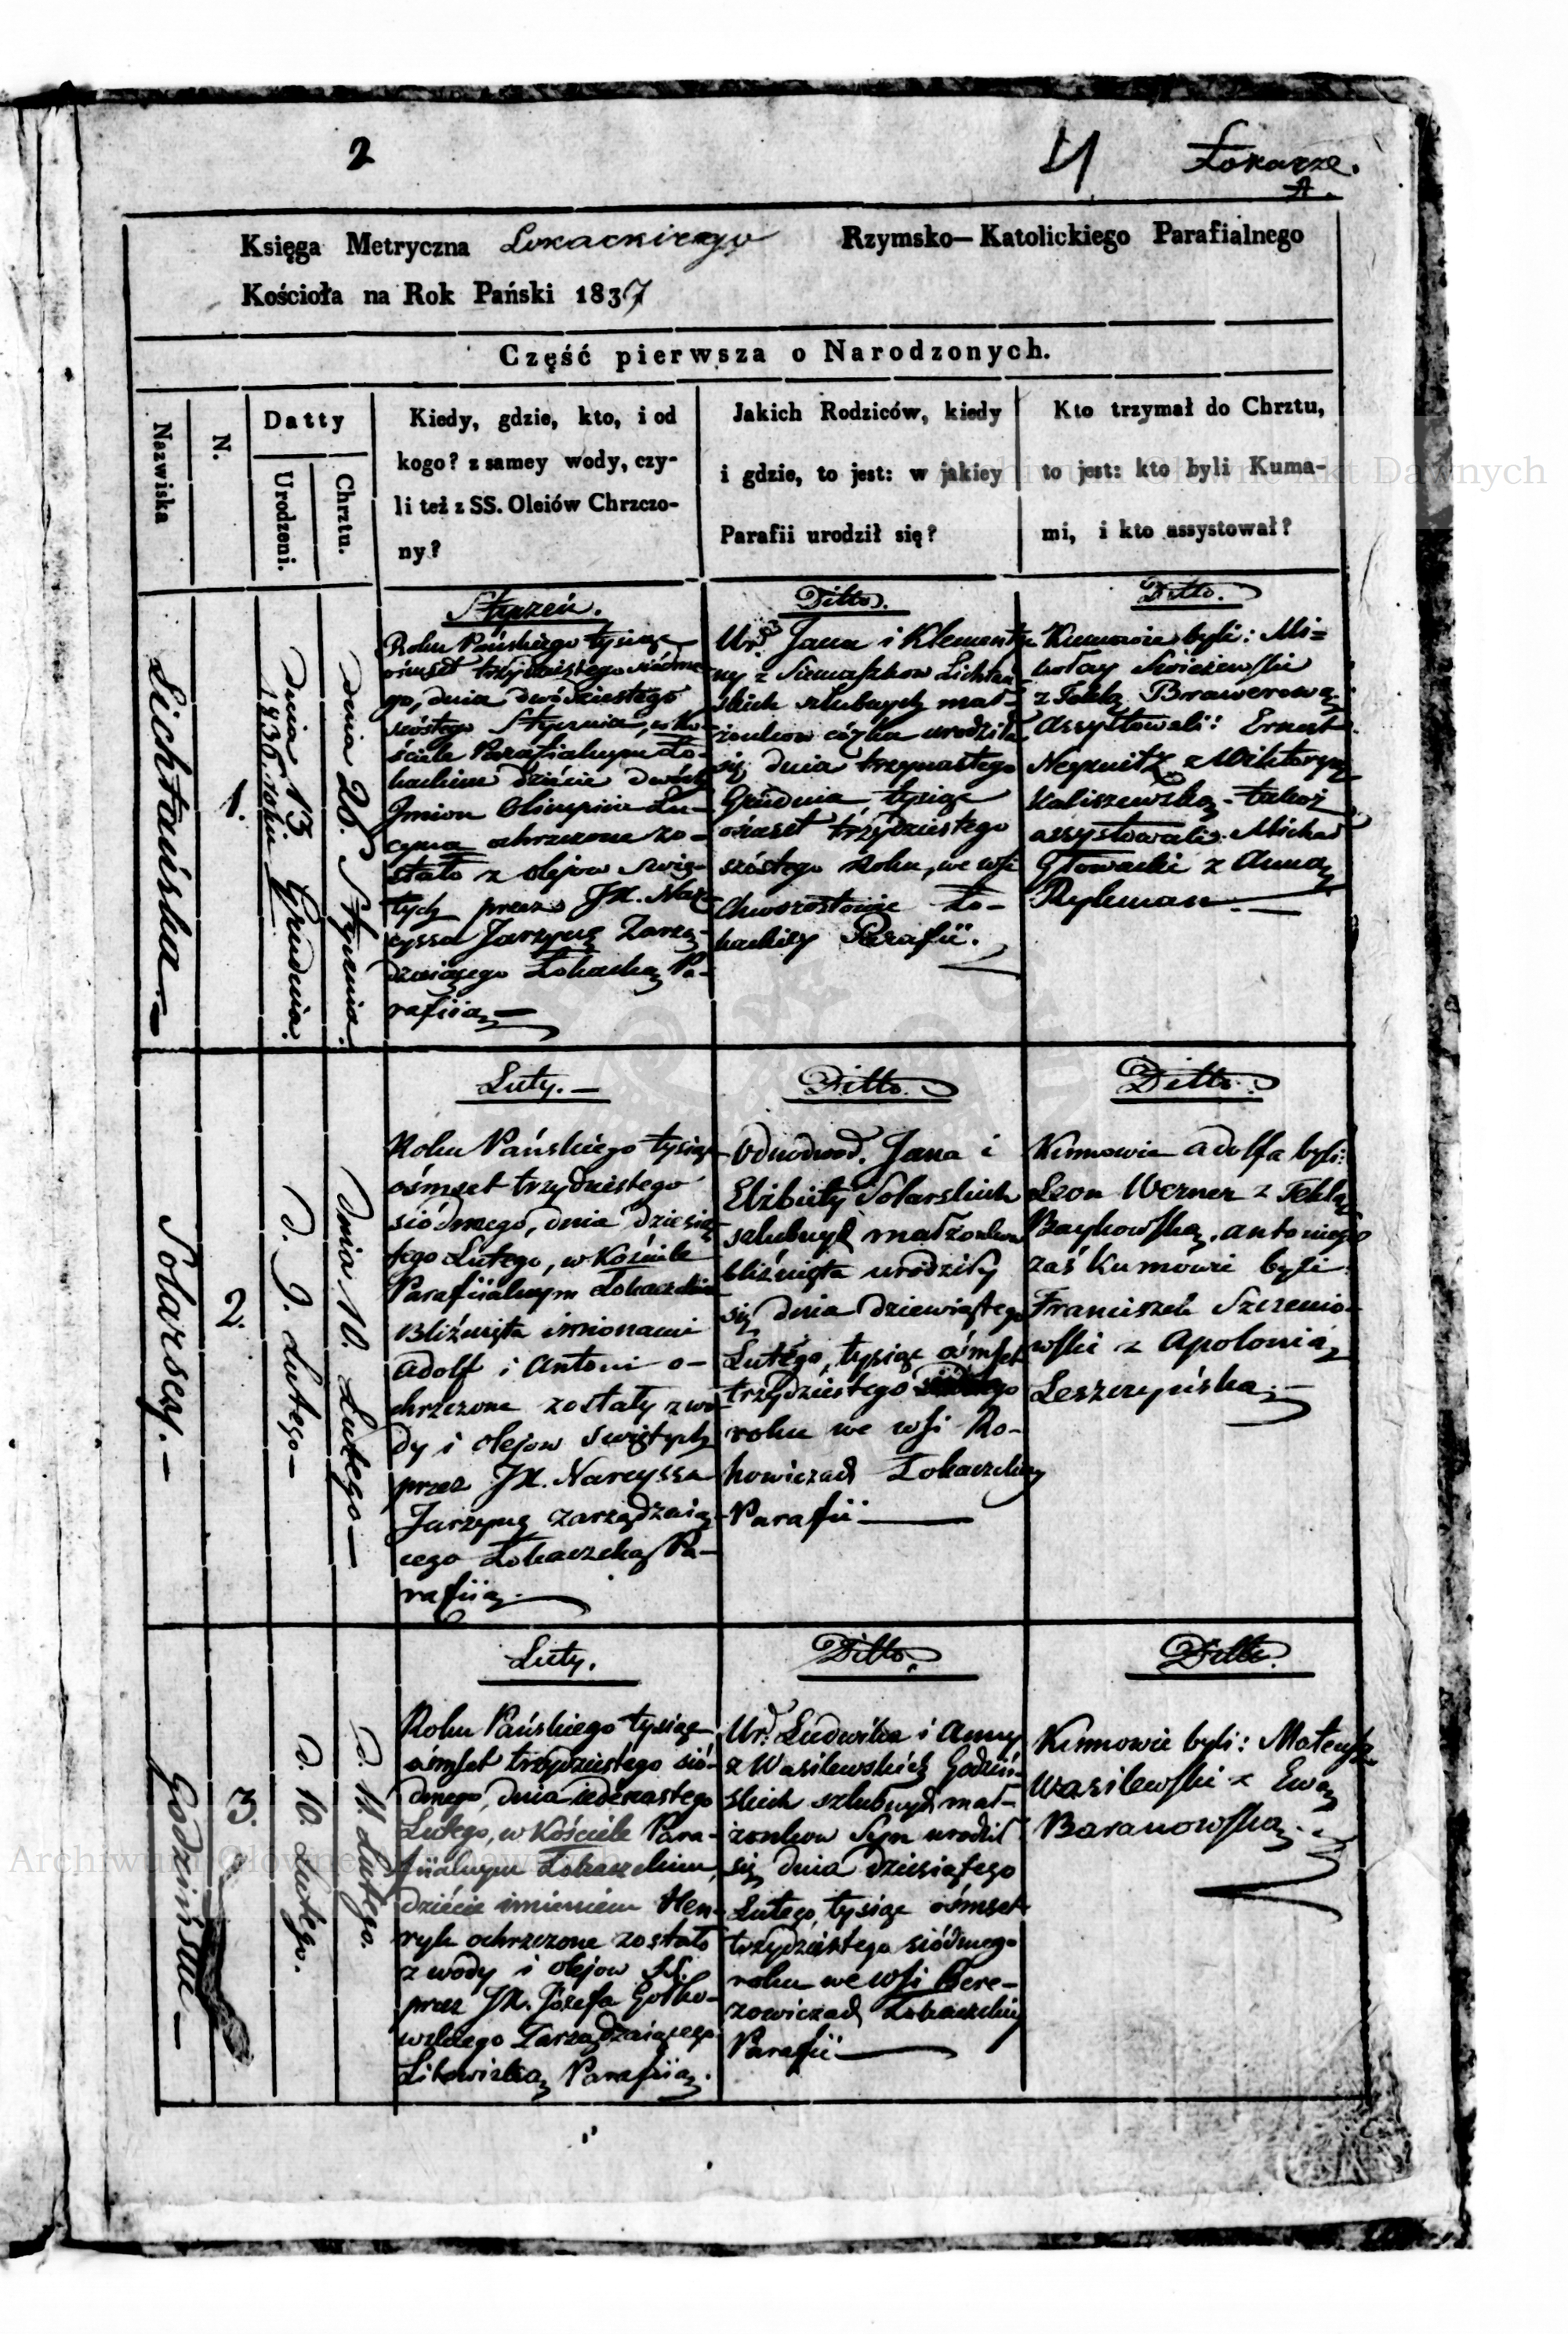 2
4 Łokacze.
A.
Księga Metryczna Łokackiego Rzymsko-Katolickiego Parafialnego
Kościoła na Rok Pański 1837
Część pierwsza o Narodzonych.
Nazwiska
N.
Datty
Urodzeni.
Chrztu.
Kiedy, gdzie, kto, i od
kogo? z samey wody, czy-
li też z SS. Oleiów Chrzczo-
ny?
Jakich Rodziców, kiedy
i gdzie, to jest: w jakiey
Parafii urodził się?
Kto trzymał do Chrztu,
to jest: kto byli Kuma-
mi, i kto assystował?
Lichtańska.
1.
dnia 13 Grudnia.
1836. roku
dnia 26. Stycznia.
Styczeń.
Roku Pańskiego tysiąc
ośmset trzydziestego siódme-
go, dnia dwódziestego
szóstego Stycznia, w Ko-
ściele Parafialnym Ło-
kackim dziécie dwóch
Imion Olimpia Lu-
cyna ochrzczone zo-
stało z olejow Swię-
tych przez JX. Nar-
cyssa Jarzynę Zarzą-
dzaiącego Łokacką Pa-
rafiią
Ditto.
Ur. Jana i Klementy-
ny z Siemaszkow Lichtań-
skich szlubnych mał-
żonkow córka urodziła
się dnia trzynastego
Grudnia tysiąc
ośmset trzydziestego
szóstego roku, we wsi
Chworostowie Ło-
kackiey Parafii.
Ditto.
Kumowie byli: Mi-
kołay Swieżewski
z Teklą Brawerową
Assystowali: Ernest
z Wiktoryą
Kaliszewską. takoż
assystowali: Michał
Głowacki z Anną
Ryleman.
Solarscy.
2.
d. 9. Lutego
dnia 10. Lutego
Luty.
Roku Pańskiego tysiąc
ośmset trzydziestego
siódmego, dnia dziesią-
tego Lutego, w Kościele
Parafiialnym Łokaczkim
Bliźnięta imionami
Adolf i Antoni o-
chrzczone zostały z wo-
dy i olejow Swiętych
przez JX. Narcyssa
Jarzynę zarządzaią-
cego Łokaczką Pa-
rafiią.
Ditto.
Odnodwod. Jana i
Elżbiety Solarskich
szlubnych małżonkow
bliźnięta urodziły
się dnia dziewiątego
Lutego, tysiąc ośmset
trzydziestego siódmego
roku we wsi Ro-
howiczach Łokaczkiey
Parafii
Ditto.
Kumowie Adolfa byli:
Leon Werner z Teklą
Baykowską. Antoniego
zaś Kumowie byli
Franciszek Szczenio-
wski z Apolonią
Leszczyńską.
Godzińscy
3.
d. 10. Lutego.
d. 11. Lutego.
Luty.
Roku Pańskiego tysiąc
ośmset trzydziestego sió-
dmego, dnia iedenastego
Lutego, w Kościele Para-
fiialnym Łokaczkim,
dziécie imieniem Hen-
ryk ochrzczone zostało
z wody i olejow SS.
przez JX. Józefa Gołko-
wskiego Zarządzaiącego
Parafiią.
Ditto.
Ur. Ludwika i Anny
z Wasilewskich Godziń-
skich szlubnych mał-
żonkow Syn urodził
się dnia dziesiątego
Lutego, tysiąc ośmset
trzydziestego siódmego
roku we wsi Bere-
zowiczach Łokaczkiey
Parafii
Ditto.
Kumowie byli: Mateusz
Wasilewski z Ewą
Baranowską.
Archiwum Główne Akt Dawnych
Archiwum Główne Akt Dawnych